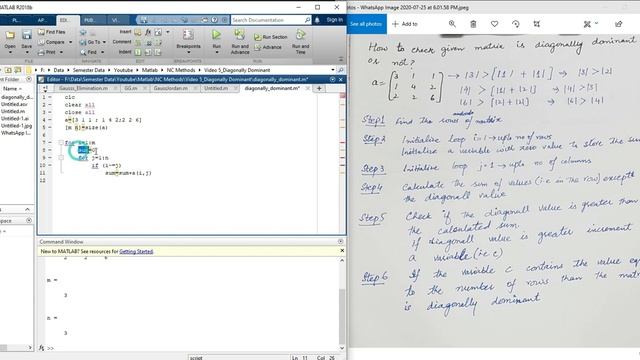 MATLAB R2018b
otos - WhatsApp Image 2020-07-25 at 6.01.58 PM.jpeg
See all photos
Add to
EDI...
Search Documentation
New
Open
Save
Find Files
Compare
Print
Go To
Find
Insert
Comment
Indent
Breakpoints
Run
Run and
Advance
Run Section
Advance
Run and
Time
FILE
NAVIGATE
EDIT
BREAKPOINTS
RUN
F: ▸ Data ▸ Semester Data ▸ Youtube ▸ Matlab ▸ NC Methods ▸ Video 5_Diagonally Dominant
Editor - F:\Data\Semester Data\Youtube\Matlab\NC Methods\Video 5_Diagonally Dominant\diagonally_dominant.m*
Gauss_Elimination.m
GG.m
GaussJordan.m
Untitled.m*
diagonally_dominant.m*
diagonally_d...
Untitled.asv
Untitled.m
Untitled-1.ai
WhatsApp I...
1 clc
2 clear all
3 close all
4 a=[3 1 1; 1 4 2;2 2 6]
5 [m n]=size(a)
6
7 for i=1:m
8 sum=0
9 for j=1:n
10 if (i~=j)
11 sum=sum+a(i,j)
12
Command Window
New to MATLAB? See resources for Getting Started.
2 2 6
m =
3
n =
3
fx >>
script
Ln 11 Col 26
How to check given matrix is diagonally dominant
or not?
a = [3 1 1 → |3| > [|1| + |1|] → |3| > |2|
1 4 2 → |4| > [|1| + |2|] → |4| > |3|
2 2 6] |6| > [|2| + |2|] → |6| > |4|
Step 1 Find the rows of matrix
Step 2 Initialize loop i = 1 → upto no of rows
Initialize a variable with zero value to store the sum
Step 3 Initialize loop j = 1 → upto no of columns
Step 4 Calculate the sum of values (i.e in the row) except
the diagonal value
Step 5 Check if the diagonal value is greater than
the calculated sum.
If diagonal value is greater increment
a variable (i.e c)
Step 6 If the variable c contains the value eq
to the number of rows than the mat
is diagonally dominant